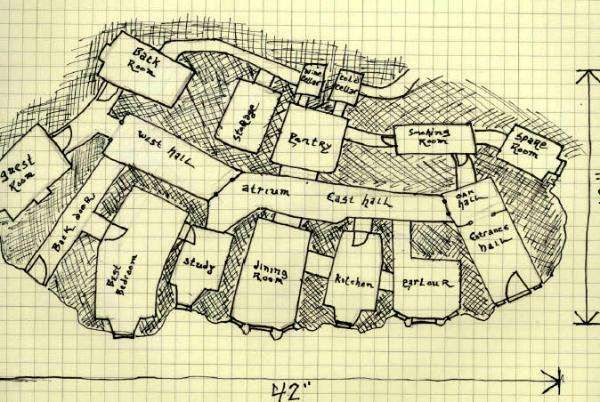 Back
Room
Wine
Cellar
Cold
Cellar
Storage
Pantry
Smoking
Room
Spare
Room
Guest
Room
West hall
Back door
atrium
East hall
oak
hall
Entrance
hall
Best
Bedroom
Study
dining
Room
Kitchen
Parlour
42"